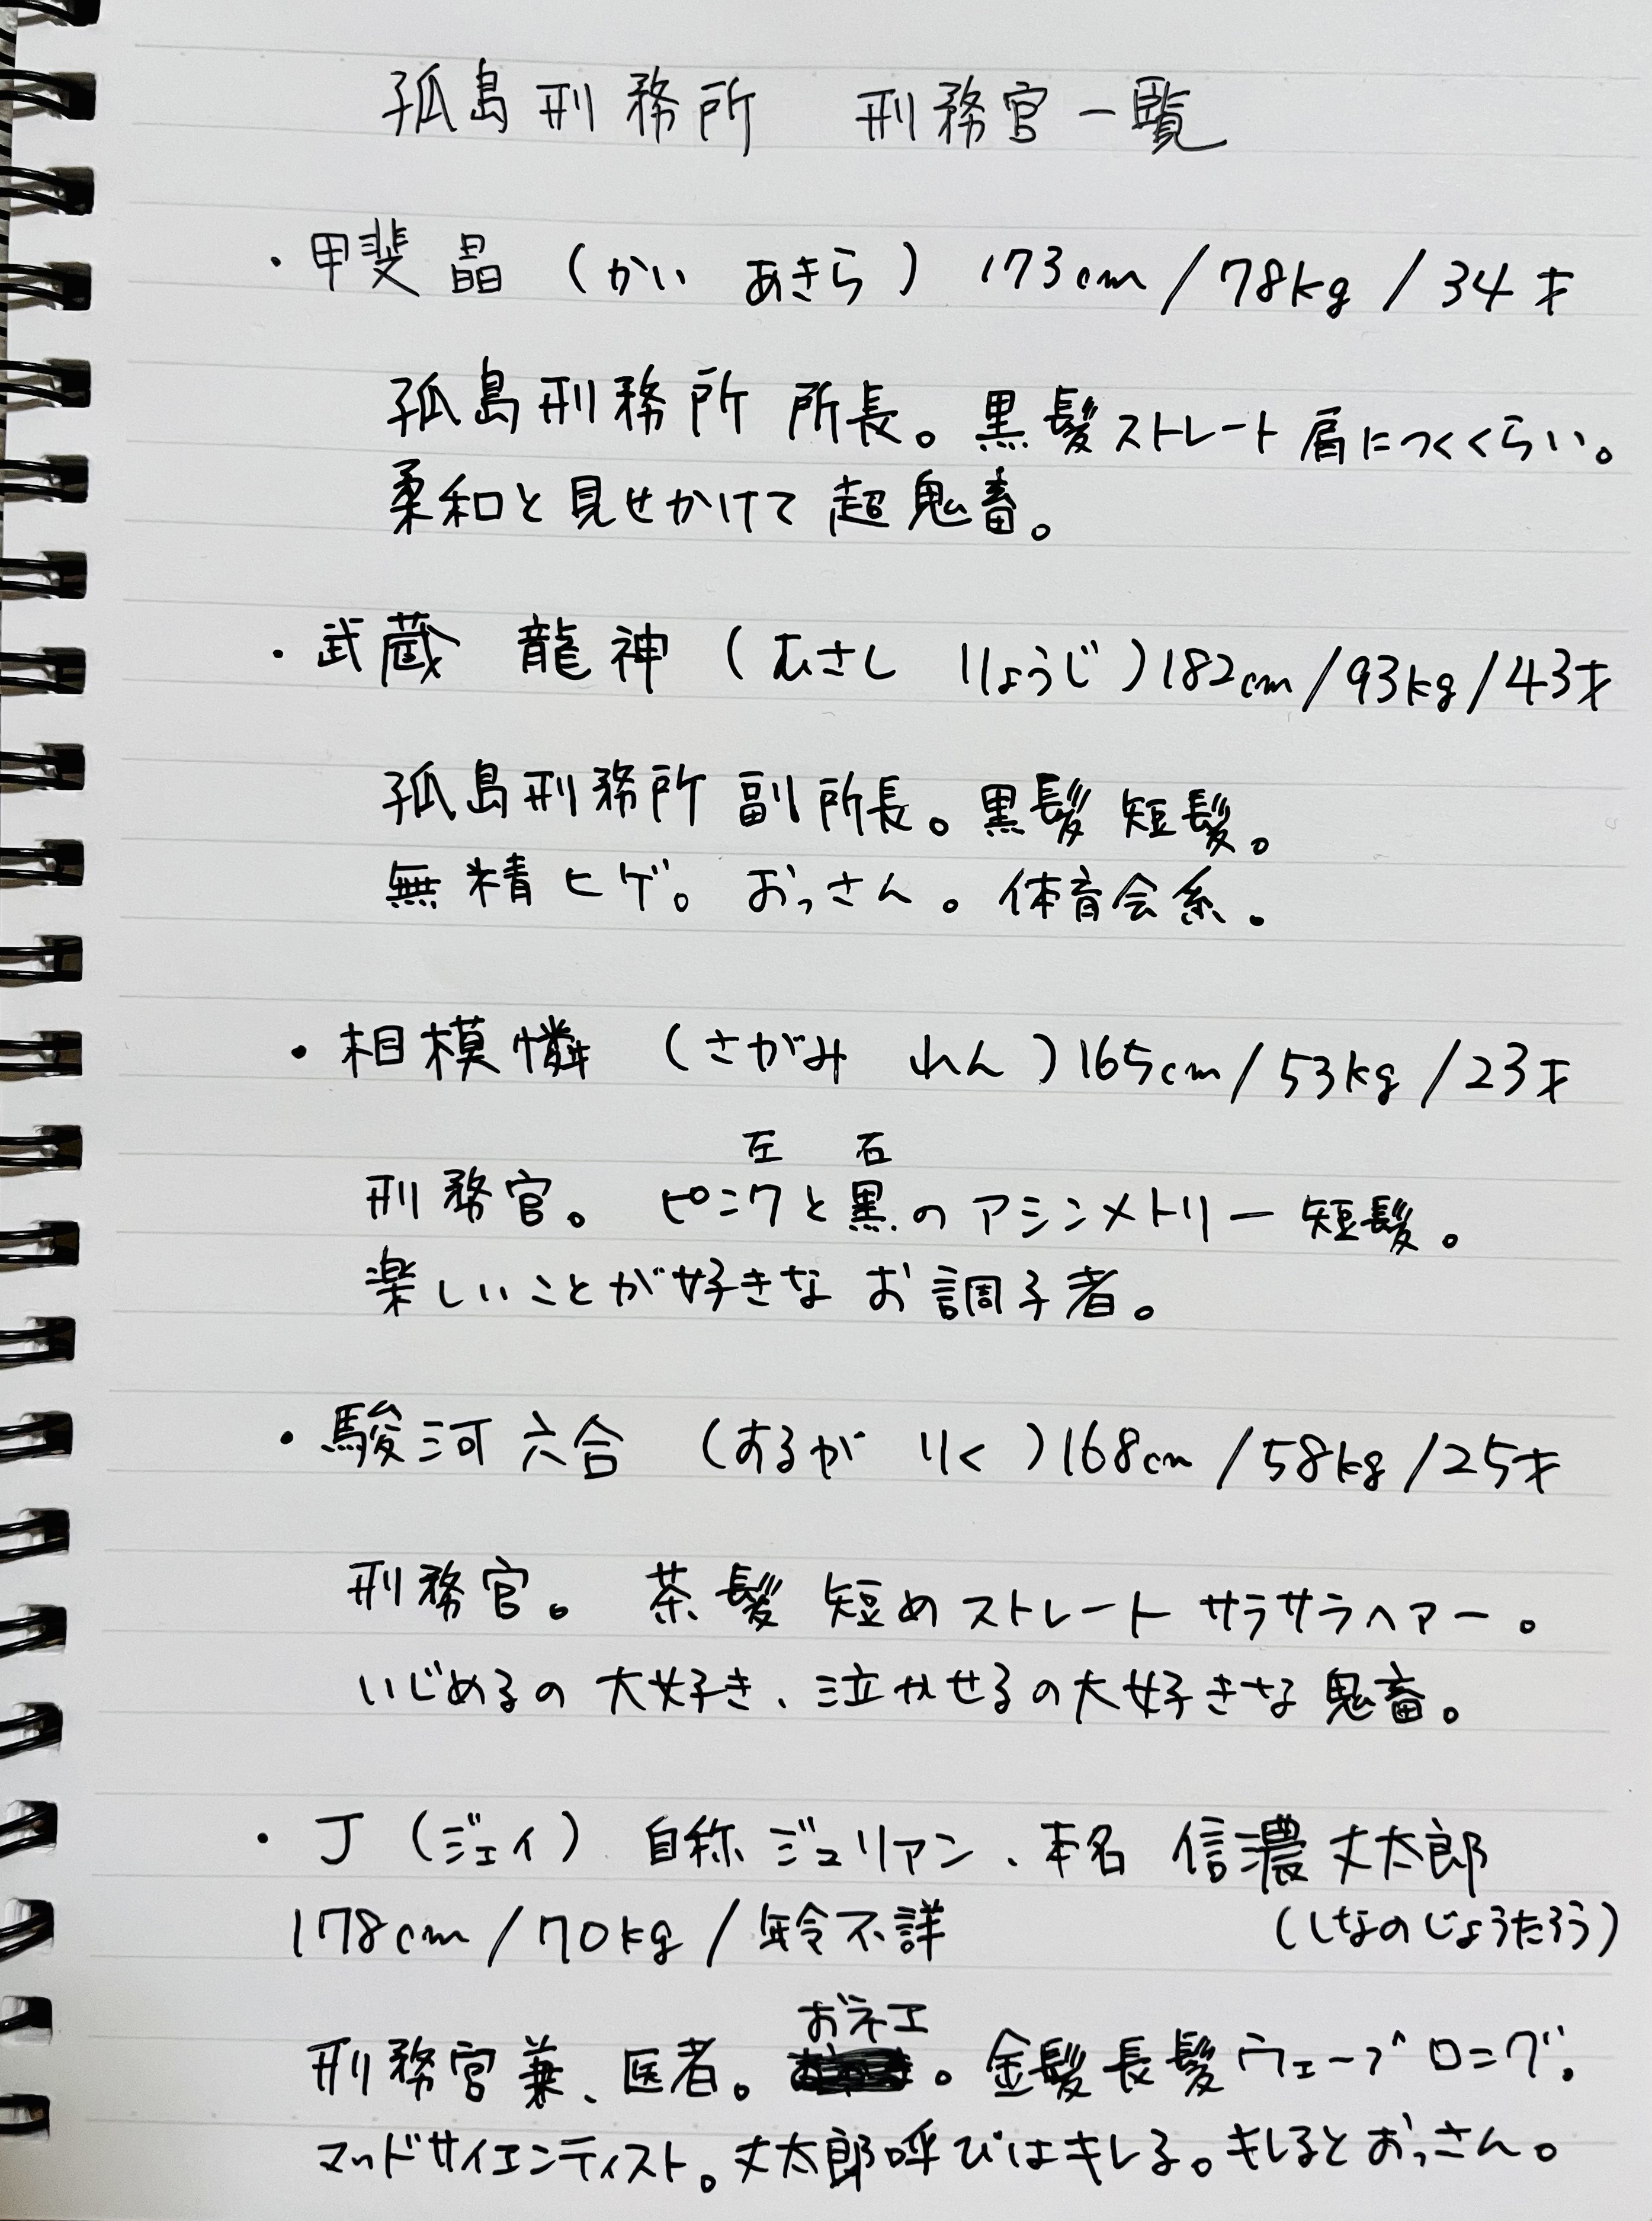 孤島刑務所 刑務官一覧
・甲斐 晶 (かい あきら) 173cm/78kg/34才
孤島刑務所 所長。黒髪ストレート 肩につくくらい。
柔和と見せかけて超鬼畜。
・武蔵 龍神 (むさし りょうじ) 182cm/93kg/43才
孤島刑務所 副所長。黒髪 短髪。
無精ヒゲ。おっさん。体育会系。
・相模 憐 (さがみ れん) 165cm/53kg/23才
左 右
刑務官。ピンクと黒のアシンメトリー 短髪。
楽しいことが好きな お調子者。
・駿河 六合 (するが りく) 168cm/58kg/25才
刑務官。茶髪 短めストレート サラサラヘアー。
いじめるの大好き、泣かせるの大好きな 鬼畜。
・J (ジェイ) 自称 ジュリアン、本名 信濃 丈太郎
178cm/70kg/年令不詳 (しなのじょうたろう)
おネエ
刑務官兼、医者。 。金髪長髪ウェーブロング。
マッドサイエンティスト。丈太郎呼びはキレる。キレるとおっさん。